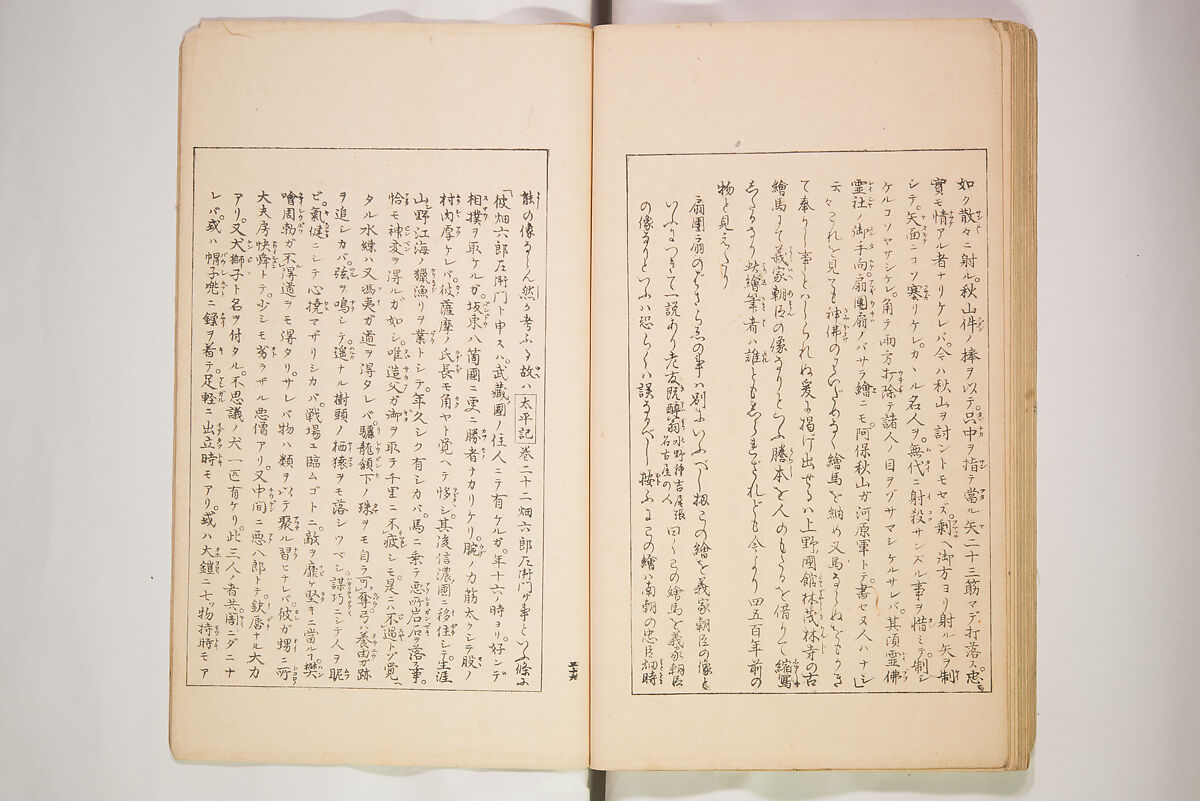 如ク散々ニ射ル。秋山件ノ棒ヲ以テ只中ヲ指テ當ル矢二十三筋マデ打落ス。忠
實モ情アル者ナリケレバ今ハ秋山ヲ討ントモセズ。剰ヘ御方ヨリ射ル矢ヲ制
シテ矢面ニコソ塞リケレ。カヽル名人ヲ無代ニ射殺サンズル事ヲ惜ミテ制シ
ケルコソヤサシケレ。角テ両方打除テ諸人ノ目ヲゾサマシケル。サレバ其頃霊佛
霊社ノ御手向扇團扇ノバサラ繪ニモ。阿保秋山ガ河原軍トテ書セヌ人ハナシ」
云々これを見ても神佛の
て奉りし事としられぬ爰に掲げ出せるハ上野國館林茂林寺の古
繪馬にて義家朝臣の像なりといふ謄本を人のもたるを借りて縮寫
したるなり此繪筆者ハ誰ともしられざれども今より四五百年前の
物と見えたり
扇團扇のばさら繪の事ハ別にいふべし扨この繪を義家朝臣の像と
いふにつきて一説あり老友阮醉翁水野
名古屋の人
曰くこの繪馬を義家朝臣
の像なりといふハ恐らくハ誤なるべし按ふにこの繪ハ南朝の忠臣畑時
能の像ならん然か考ふる故ハ太平記卷二十二畑六郎左衛門が事といふ條に
「彼畑六郎左衛門ト申スハ武藏國ノ住人ニテ有ケルガ。年十六ノ時ヨリ好ンデ
相撲ヲ取ケルガ。坂東八箇國ニ更ニ勝者ナカリケリ。腕ノ力筋太クシテ股ノ
村肉厚ケレバ。彼薩摩ノ氏長モ角ヤト覚ヘテ夥シ。其後信濃國ニ移住シテ生涯
山野江海ノ獵漁リヲ業トシテ。年久シク有シカバ。馬ニ乗テ悪所岩石ヲ落ス事。
恰モ神変ヲ得ルガ如シ。唯造父ガ御ヲ取テ千里ニ不疲シモ是ニハ不過トゾ覚ヘ
タル水練ハ又馮夷ガ道ヲ得タレバ。驪龍頷下ノ珠ヲモ自ラ可奪弓ハ養由ガ跡
ヲ追シカバ。弦ヲ鳴シテ遥ナル樹頭ノ栖猿ヲモ落シツベシ。謀巧ニシテ人ヲ眤
ビ。氣健ニシテ心撓マザリシカバ。戦場ニ臨ムゴトニ。敵ヲ靡ケ堅キニ當ル「樊
噲周勃ガ不得道ヲモ得タリ。サレバ物ハ類ヲ以テ聚ル習ヒナレバ。彼ガ甥ニ所
大夫房快舜トテ。少シモ劣ラザル悪僧アリ。又中間ニ悪八郎トテ。欽唇ナル大力
アリ。又犬獅子ト名ヲ付タル。不思議ノ犬一匹有ケリ。此三人ノ者共闇ニダニナ
レバ。或ハ帽子兜ニ鎖ヲ着テ足軽ニ出立時モアリ。或ハ大鎧ニ七ツ物持時モア